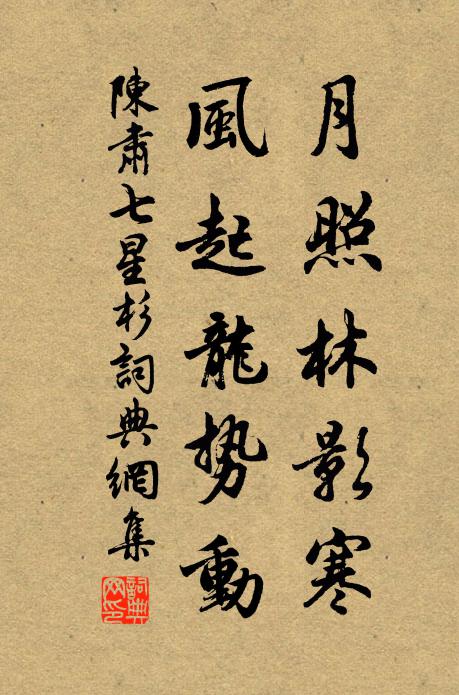 月照林影寒
風起龍势動
陳肅七星杉詞典網集
詞典网印